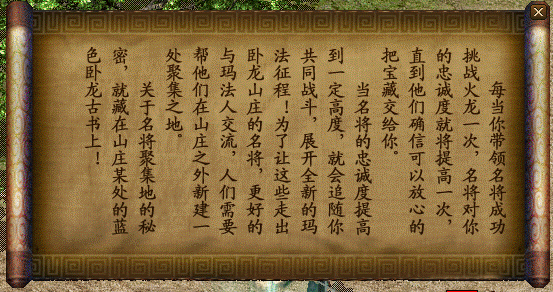 每当你带领名将成功
挑战火龙一次，名将对你
的忠诚度就将提高一次，
直到他们确信可以放心的
把宝藏交给你。
当名将的忠诚度提高
到一定高度，就会追随你
共同战斗，展开全新的玛
法征程！为了让这些走出
卧龙山庄的名将，更好的
与玛法人交流，人们需要
帮他们在山庄之外新建一
处聚集之地。
关于名将聚集地的秘
密，就藏在山庄某处的蓝
色卧龙古书上！